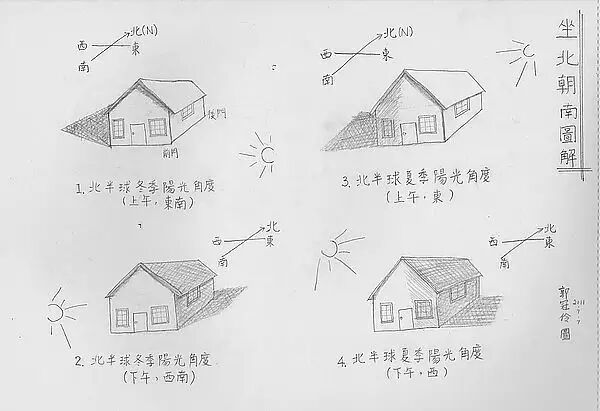 坐北朝南圖解
北(N)
西
東
南
後門
前門
1. 北半球冬季陽光角度
(上午，東南)
北(N)
西
東
南
3. 北半球夏季陽光角度
(上午，東)
北
西
東
南
2. 北半球冬季陽光角度
(下午，西南)
北
西
東
南
4. 北半球夏季陽光角度
(下午，西)
郭冠伶圖
2011
7
7